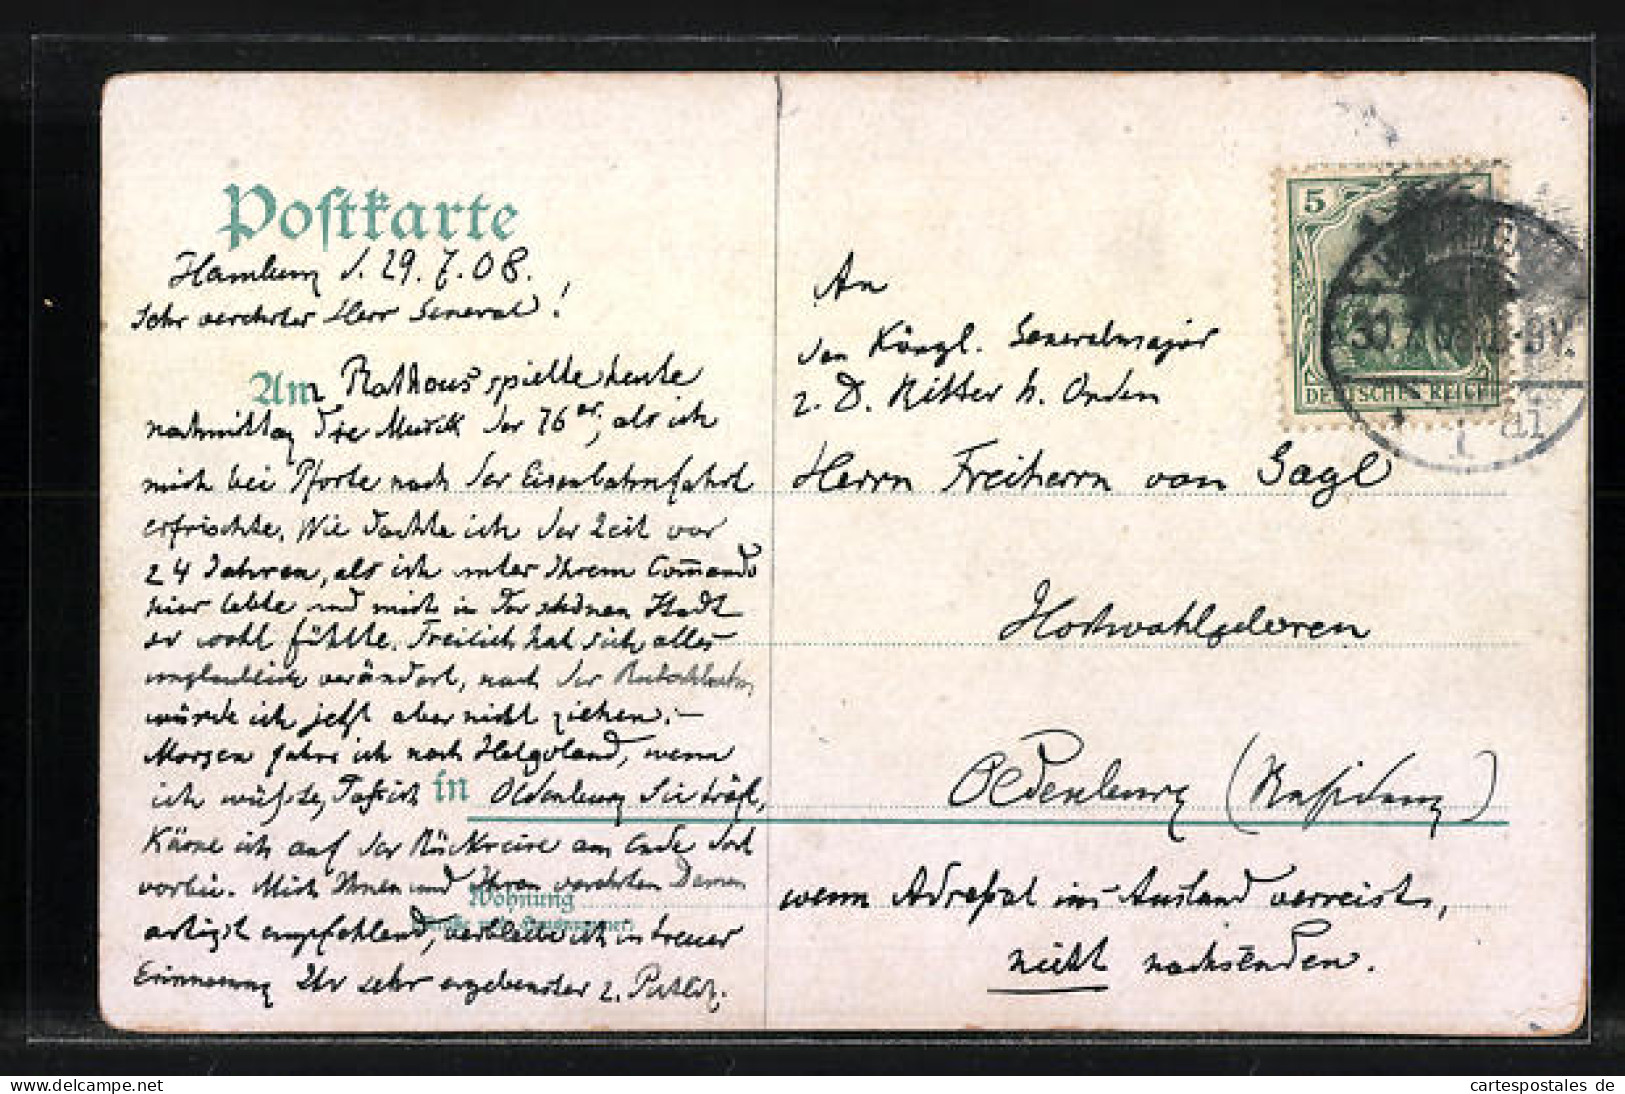 Postkarte
Hamburg d. 29.7.08.
Sehr verehrter Herr General!
Am Rathaus spielte heute
nachmittag die Musik der 76er, als ich
mich bei Pforte nach der Eisenbahnfahrt
erfrischte. Wie dachte ich der Zeit vor
24 Jahren, als ich unter Ihrem Commando
hier lebte und mich in der schönen Stadt
so wohl fühlte. Freilich hat sich alles
unglaublich verändert, nach der
würde ich jetzt aber nicht ziehen. –
Morgen fahre ich nach Helgoland, wenn
ich wüßte, daß ich in Oldenburg Sie träfe,
käme ich auf der Rückreise am Ende dort
vorbei. Mich Ihnen und Ihren verehrten Damen
Wohnung
artigst empfehlend, verbleibe ich in treuer
(Straße und Hausnummer)
Erinnerung Ihr sehr ergebenster
An
den Königl. Generalmajor
z. D. Ritter h. Orden
Herrn Freiherrn von Gagl
Hochwohlgeboren
Oldenburg (Residenz)
wenn Adressat ins Ausland verreist,
nicht nachsenden.
5
DEUTSCHES REICH
30.7.08. 8-9V.